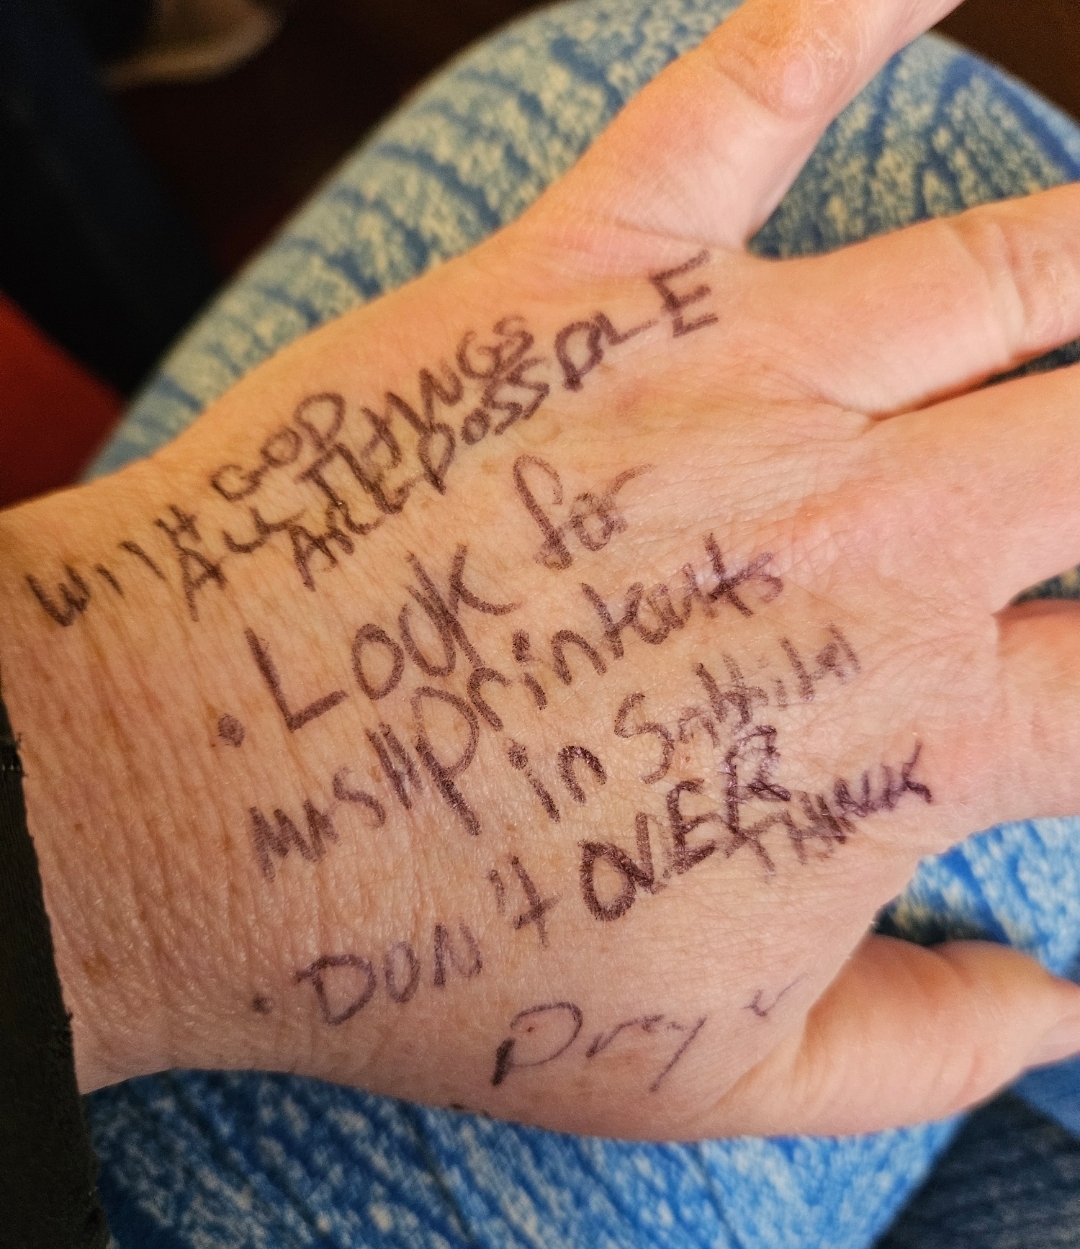 With GOD
ALL THINGS
ARE POSSIBLE
• Look for
misllprintouts
in
• DON't OVER
THINK
Pray